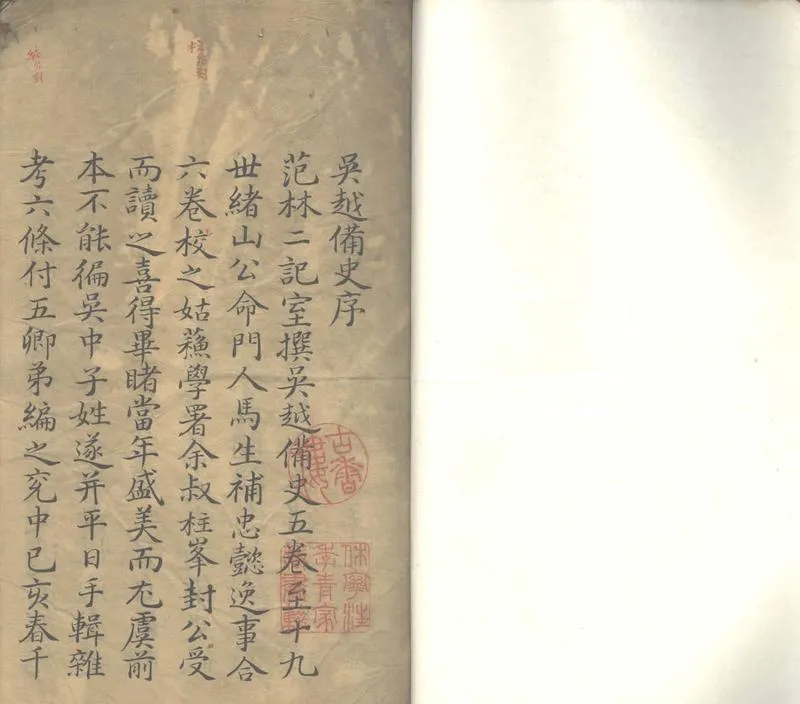 吳越備史序
范林二記室撰吳越備史五卷至十九
世緒山公命門人馬生補忠懿逸事合
六卷校之姑蘓學署余叔柱峯封公受
而讀之喜得畢睹當年盛美而尤虞前
本不能徧吳中子姓遂并平日手輯雜
考六條付五卿弟編之兖中已亥春千